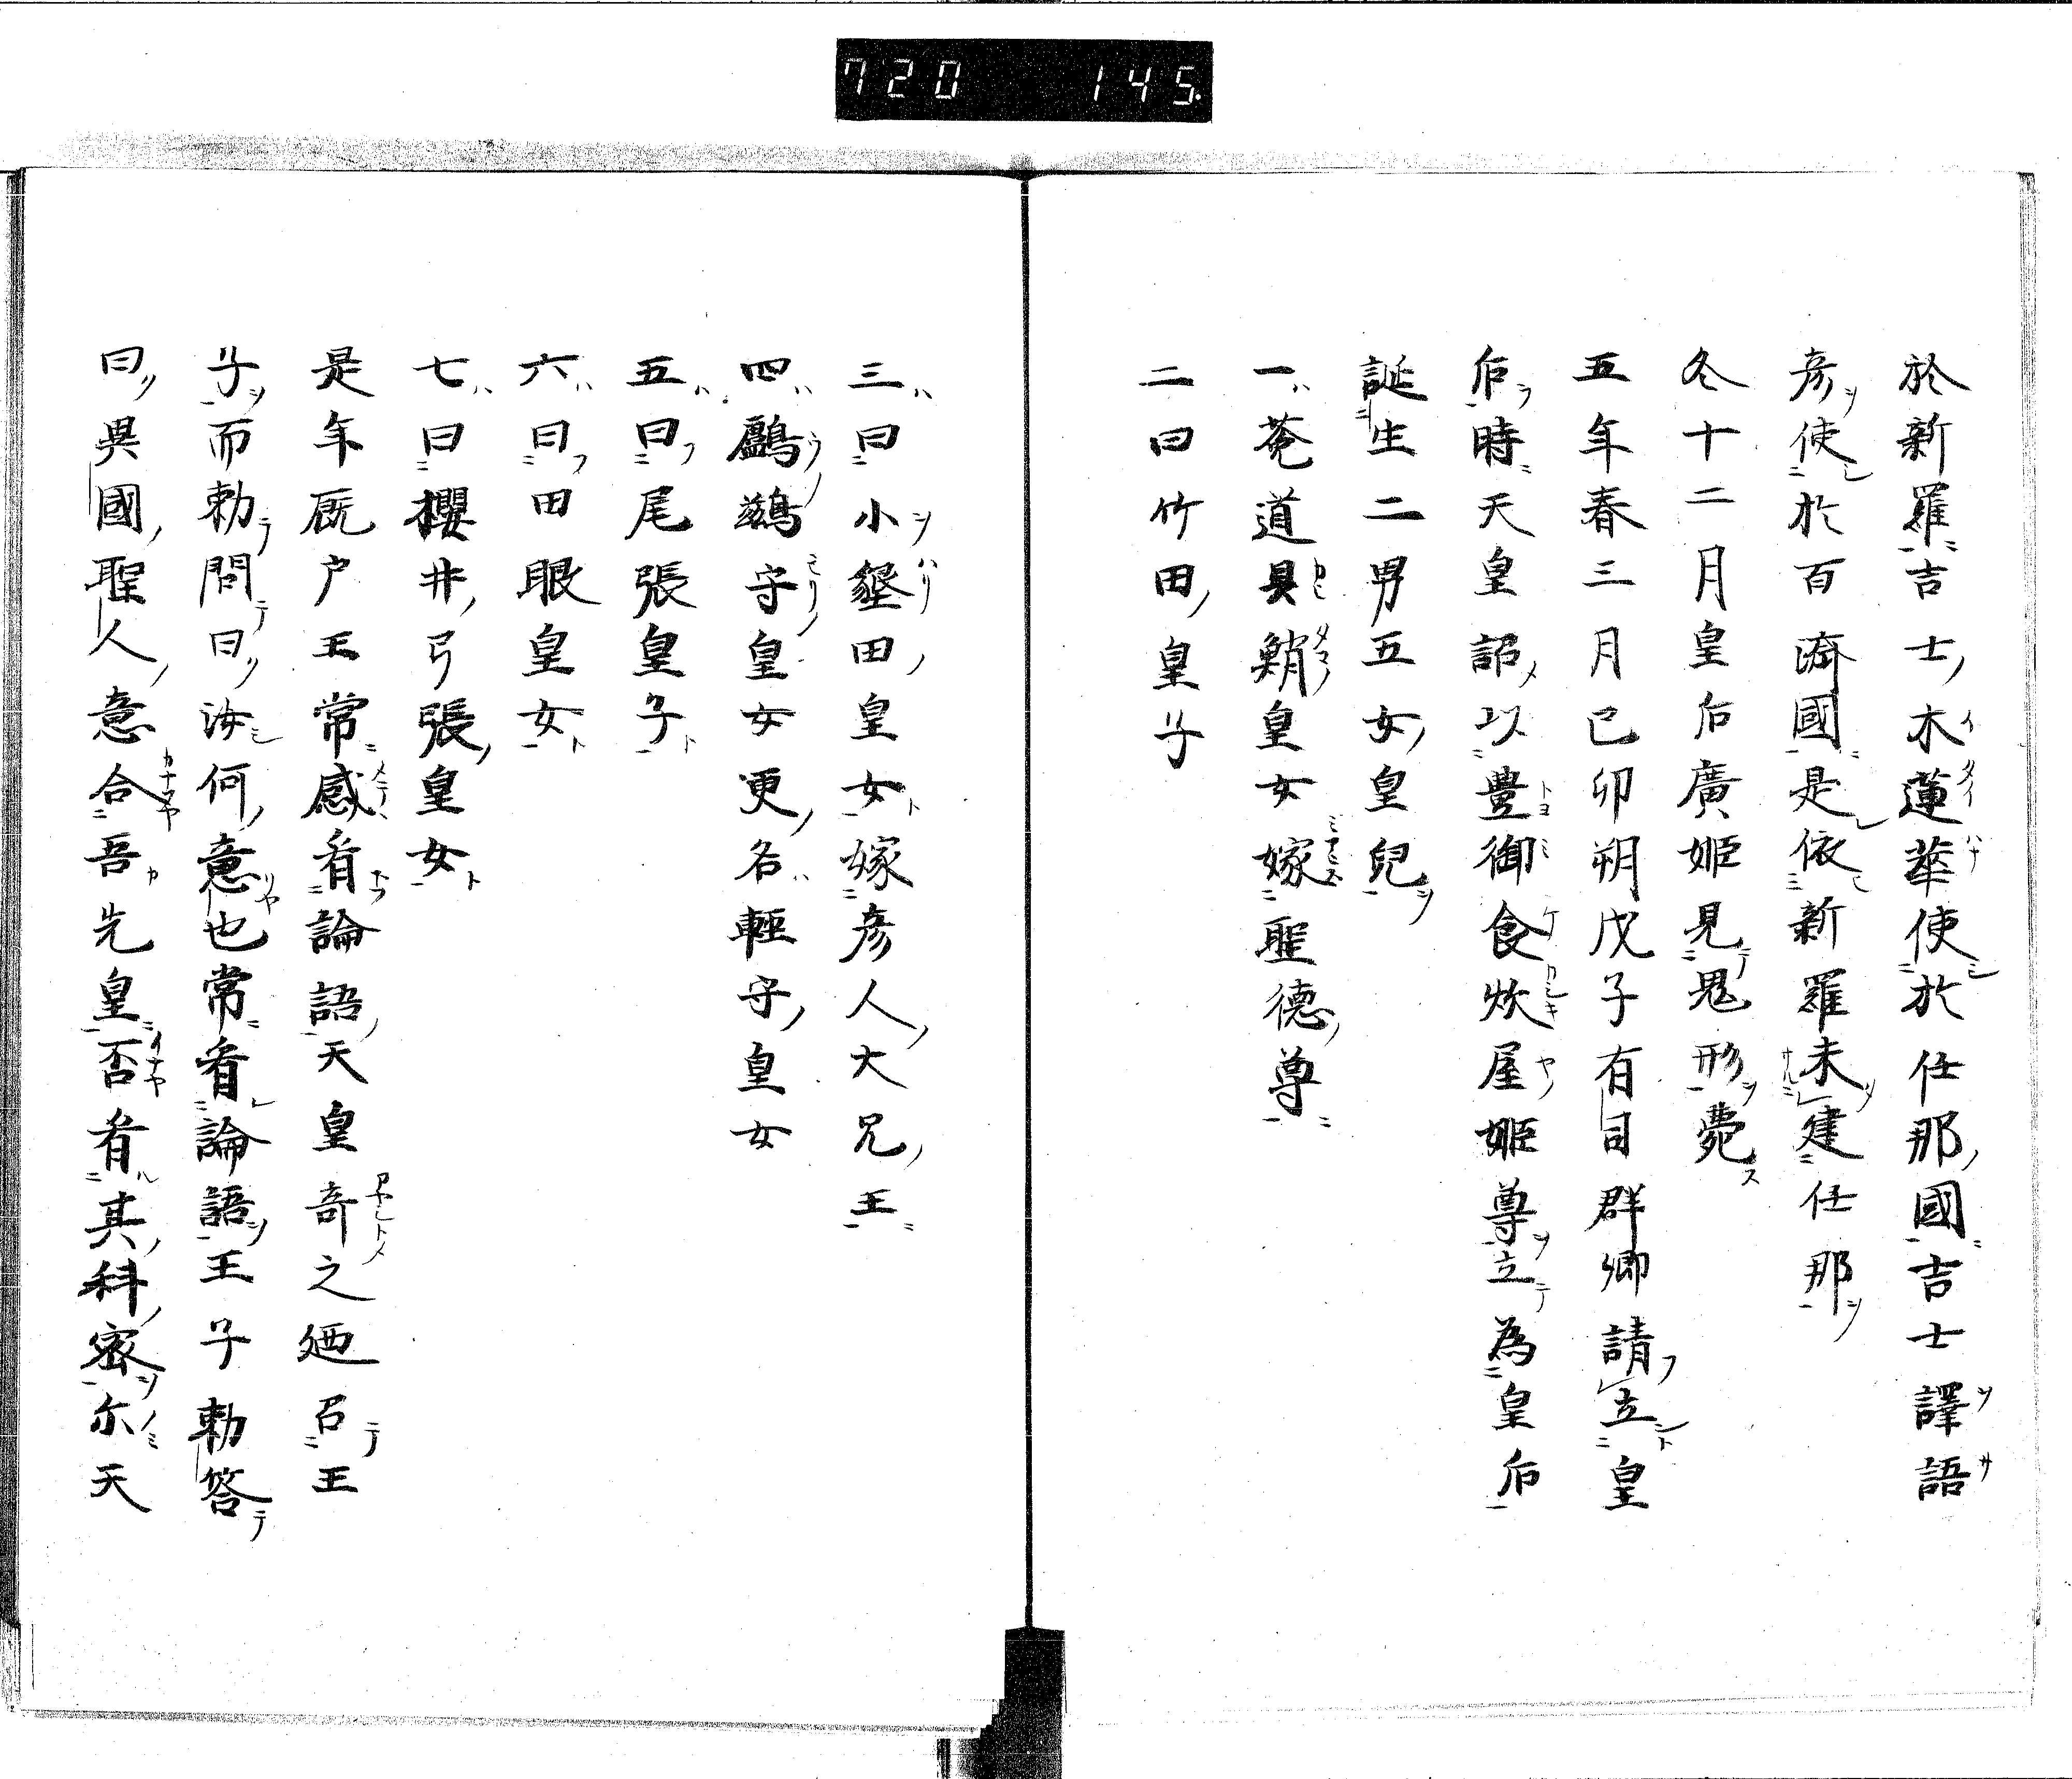 720 145.
於新羅吉士木蓮華使於任那國吉士譯語
彦使於百濟國是依新羅未建任那
冬十二月皇后廣姫見鬼形薨
五年春三月己卯朔戊子有司群卿請立皇
后時天皇詔以豊御食炊屋姫尊立為皇后
誕生二男五女皇兒
一菟道具鮹皇女嫁聖德尊
二曰竹田皇子
三曰小墾田皇女嫁彦人大兄王
四鸕鷀守皇女更名輕守皇女
五曰尾張皇子
六曰田眼皇女
七曰櫻井弓張皇女
是年厩户王常感看論語天皇奇之廼召王
子而勅問曰汝何意也常看論語王子勅答
曰異國聖人意合吾先皇否看其科密尓天